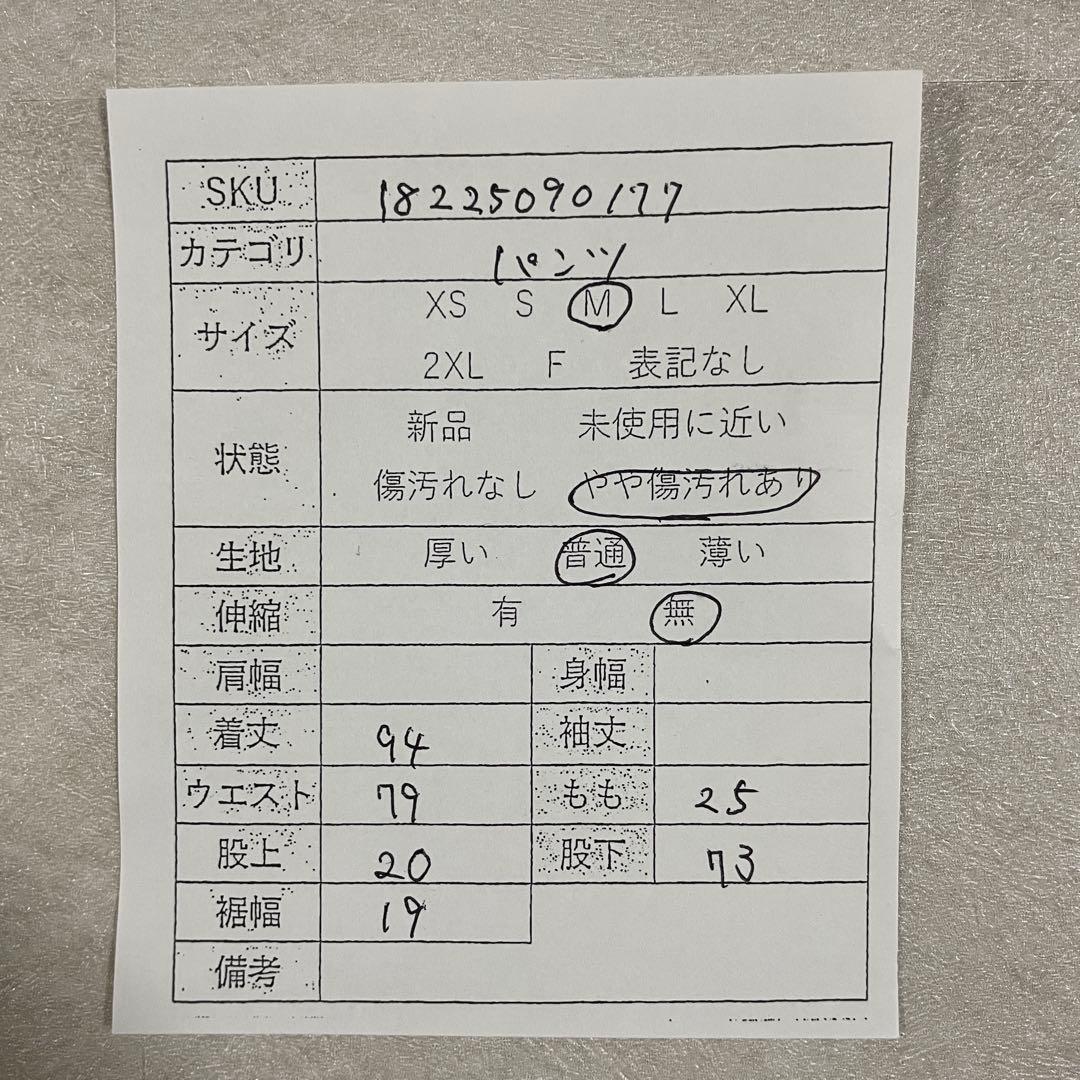 SKU 18225090177
カテゴリ パンツ
サイズ XS S M L XL
2XL F 表記なし
状態 新品 未使用に近い
傷汚れなし やや傷汚れあり
生地 厚い 普通 薄い
伸縮 有 無
肩幅 身幅
着丈 94 袖丈
ウエスト 79 もも 25
股上 20 股下 73
裾幅 19
備考